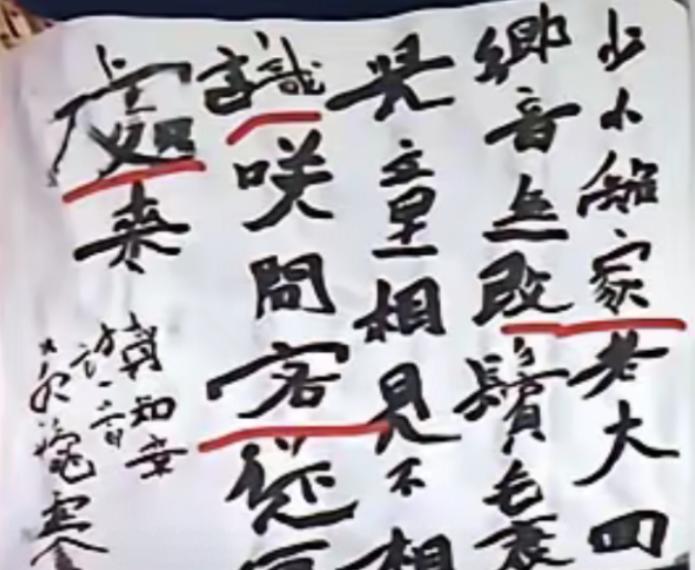 少小離家老大回
鄉音無改鬢毛衰
兒童相見不相
識咲問客從
處來
賀知章
詩一首